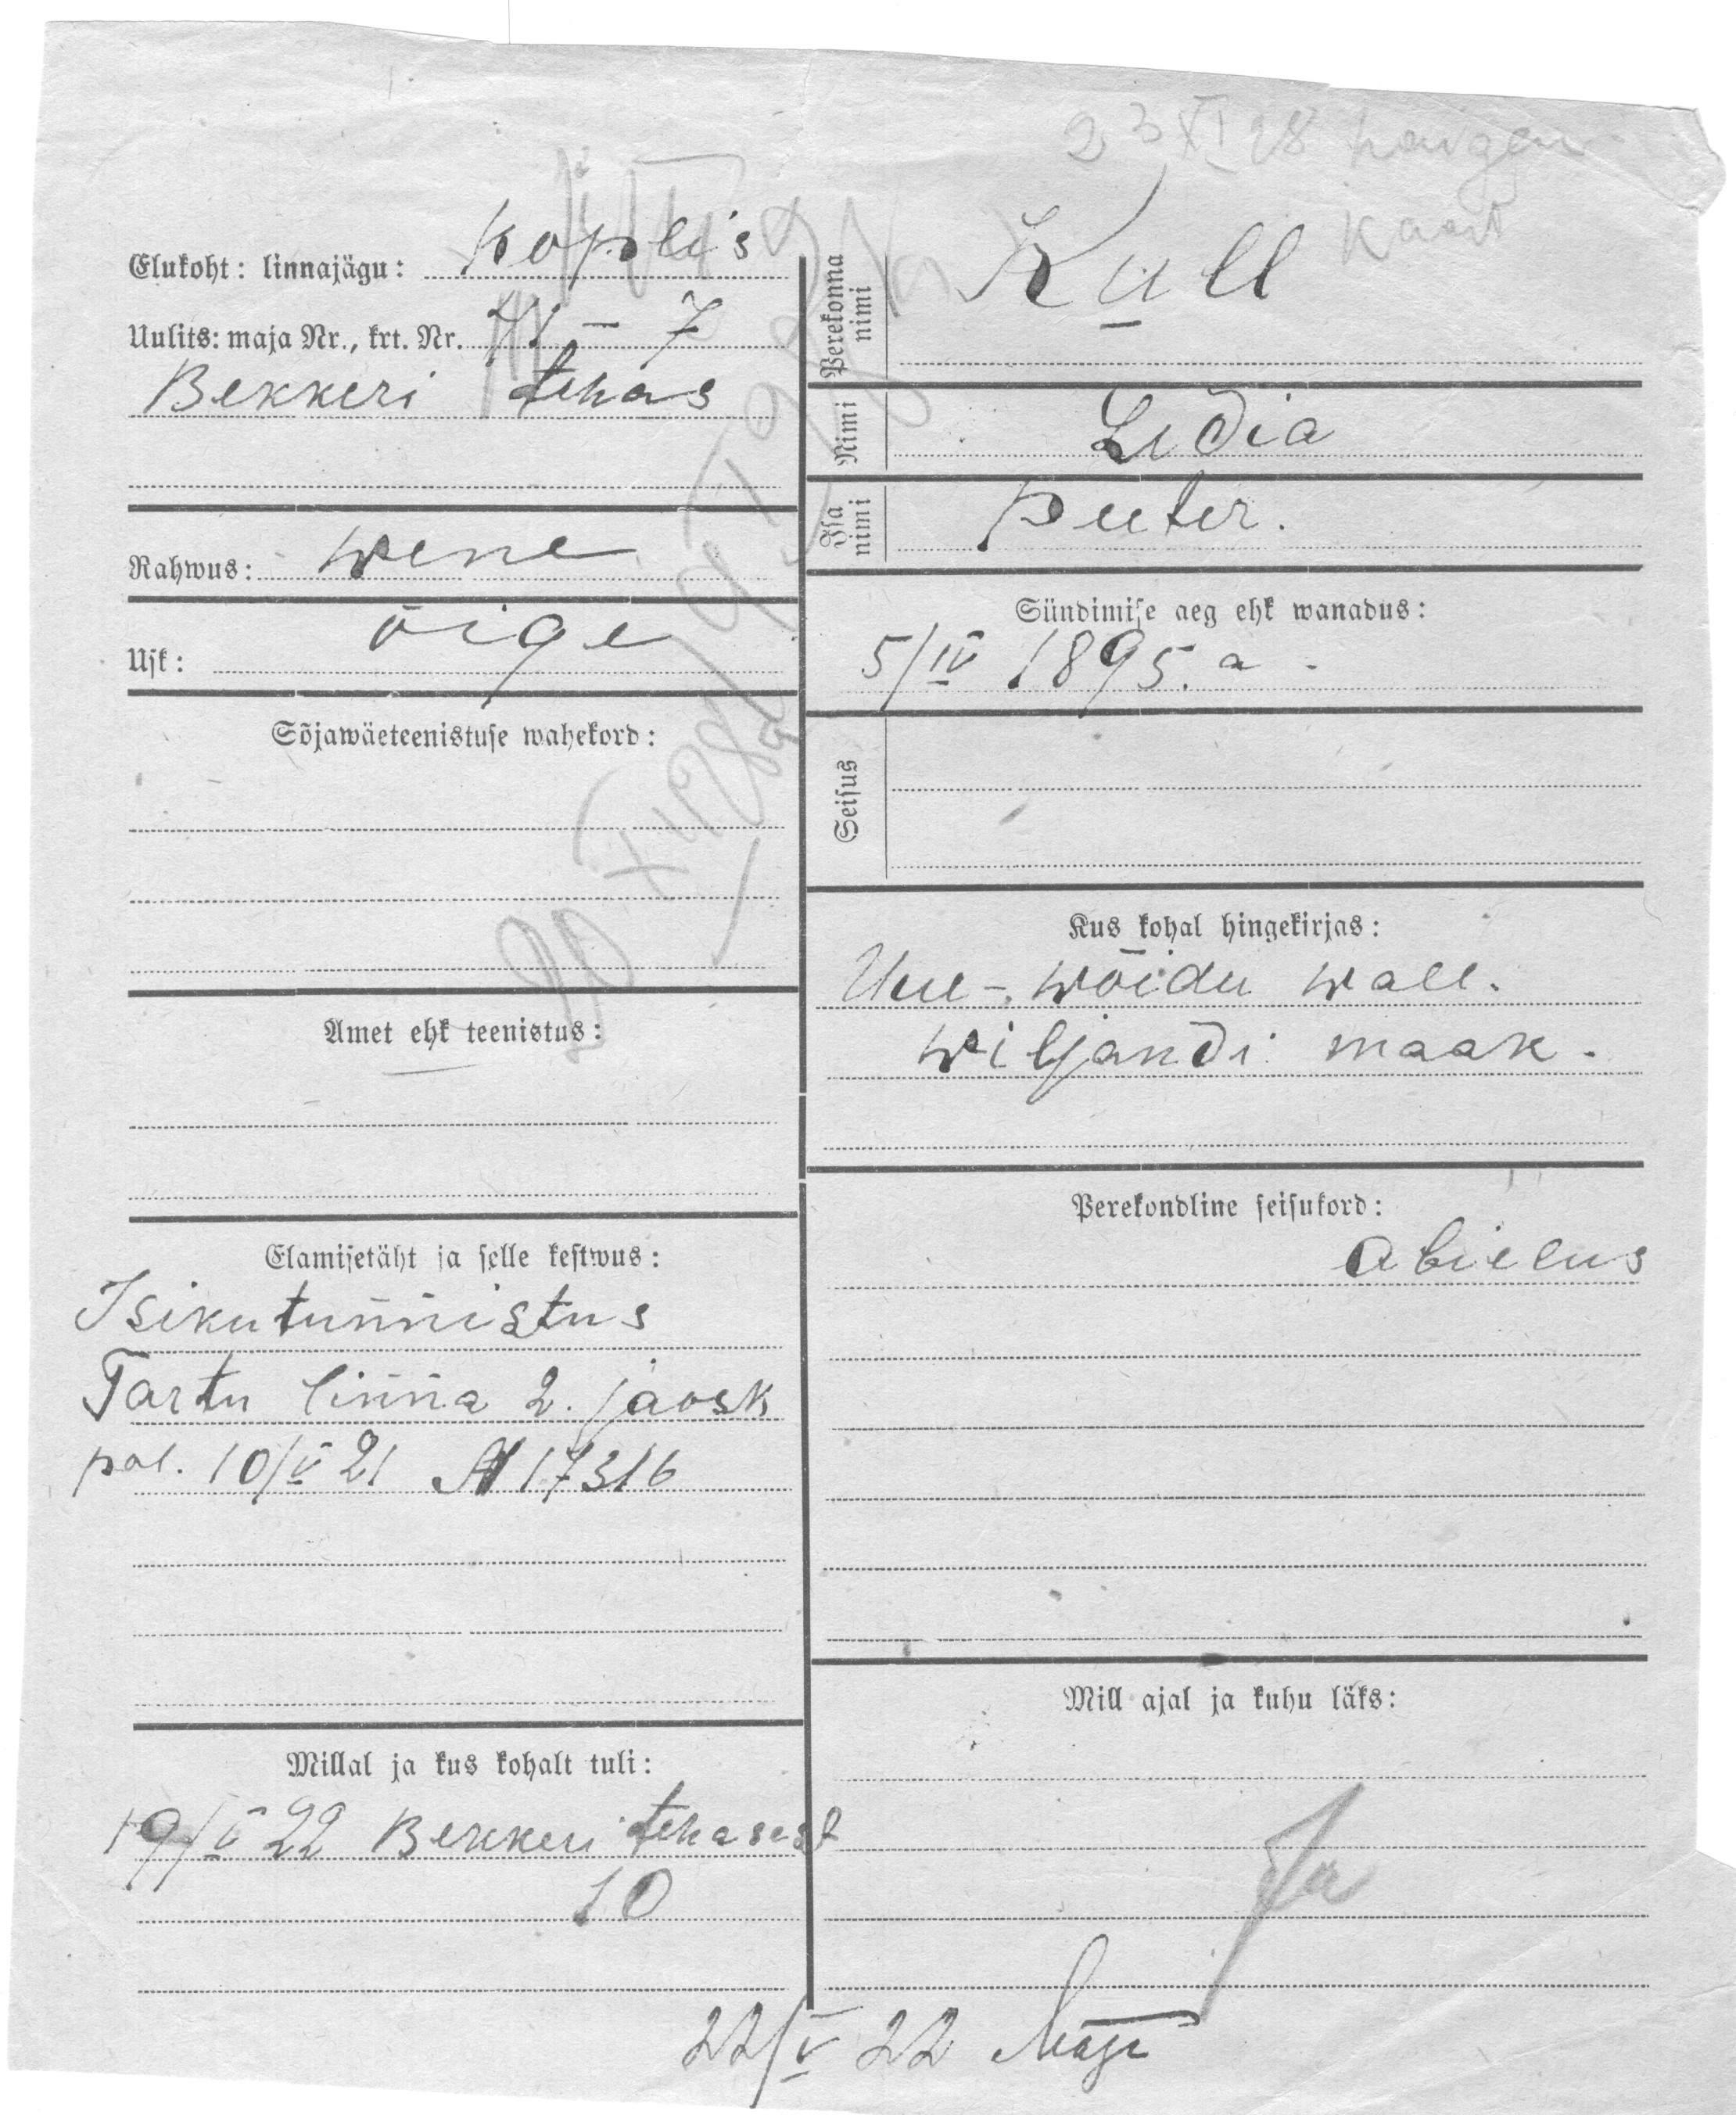 23 XI 28
Kaart
Elukoht: linnajägu: Koplis
Uulits: maja Nr., krt. Nr. 41 – 7
Bekkeri tehas
Rahwus: wene
Usk: õige
Sõjawäeteenistuse wahekord:
Amet ehk teenistus:
Elamisetäht ja selle kestwus:
Isikutunnistus
Tartu linna 2. jaosk
pol. 10/V 21 № 17316
Millal ja kus kohalt tuli:
19/V 22 Bekkeri tehasest
10
Perekonna nimi Kull
Nimi Lidia
Isa nimi Peeter.
Sündimise aeg ehk wanadus:
5/IV 1895. a.
Seisus
Kus kohal hingekirjas:
Uue-wõidu wall.
wiljandi maak.
Perekondline seisukord:
abielus
Mill ajal ja kuhu läks:
22/V 22